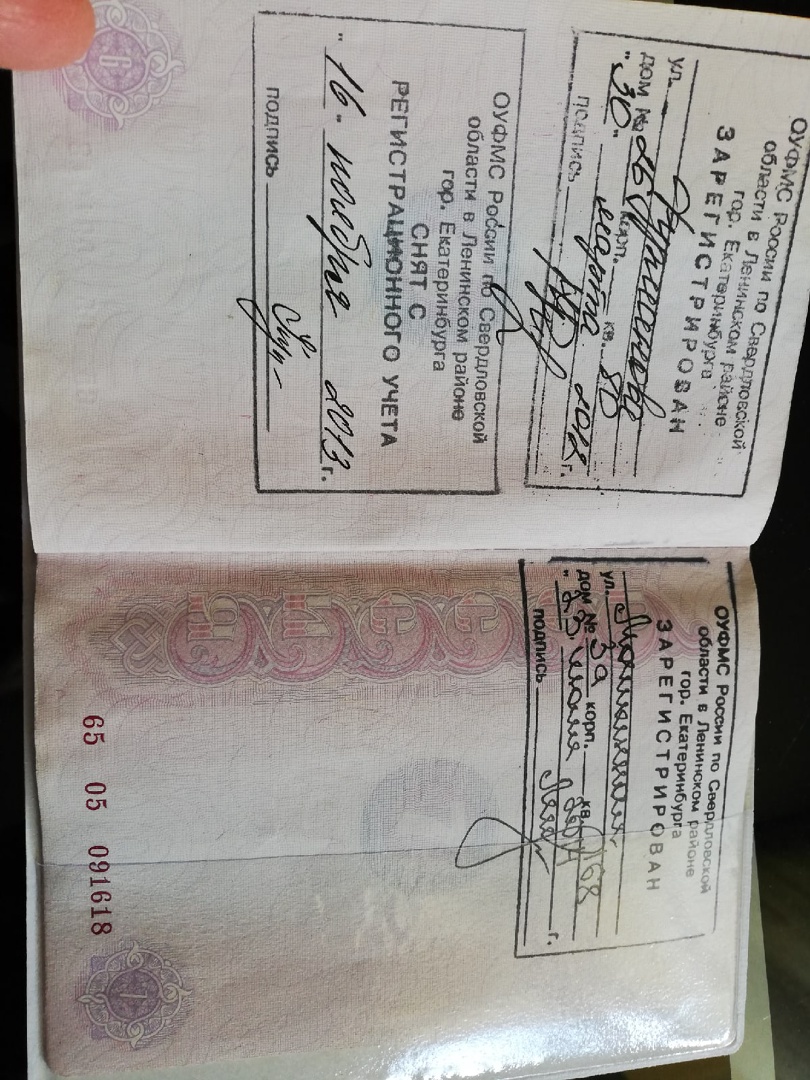 ОУФМС России по Свердловской
области в Ленинском районе
гор. Екатеринбурга
ЗАРЕГИСТРИРОВАН
ул.
дом № 26 корп. кв. 80
"30" марта г.
подпись
ОУФМС России по Свердловской
области в Ленинском районе
гор. Екатеринбурга
СНЯТ С
РЕГИСТРАЦИОННОГО УЧЕТА
"16" ноября 2013 г.
подпись
6
ОУФМС России по Свердловской
области в Ленинском районе
гор. Екатеринбурга
ЗАРЕГИСТРИРОВАН
ул.
дом № 3а корп. кв. 168
"23" г.
подпись
65 05 091618
7